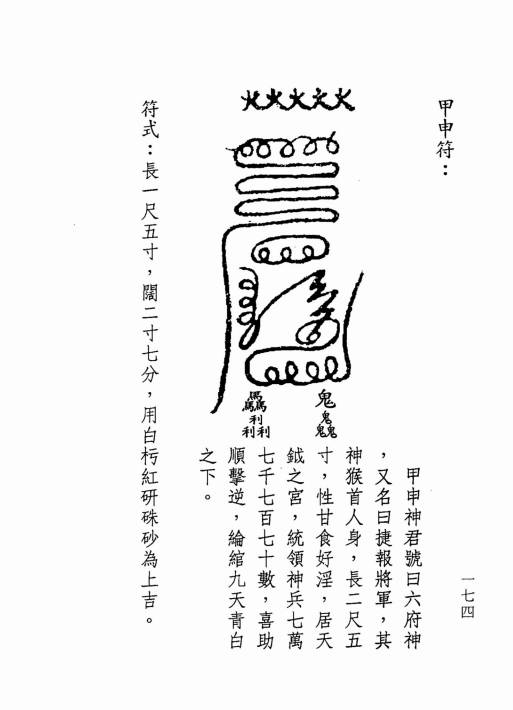 甲申符：
火火火火火
鬼
鬼
鬼鬼
馬
馬馬
利
利利
甲申神君號曰六府神
，又名曰捷報將軍，其
神猴首人身，長二尺五
寸，性甘食好淫，居天
鉞之宮，統領神兵七萬
七千七百七十數，喜助
順擊逆，綸綰九天青白
之下。
符式：長一尺五寸，闊二寸七分，用白杇紅研硃砂為上吉。
一七四